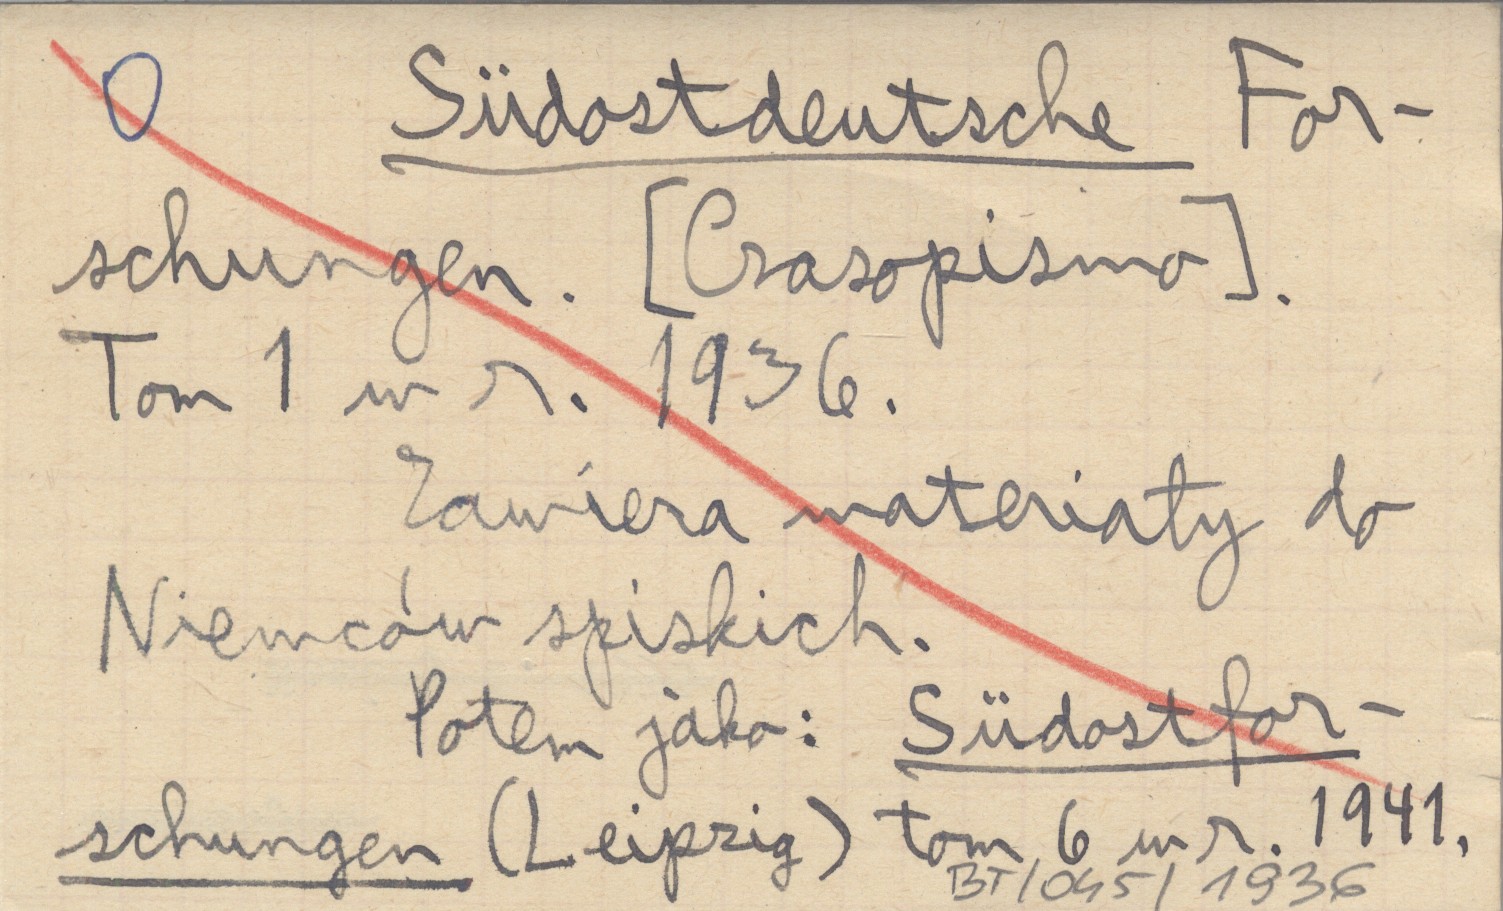 O Südostdeutsche For-
schungen. [Czasopismo].
Tom 1 w r. 1936.
Zawiera materiały do
Niemców spiskich.
Potem jako: Südostfor-
schungen (Leipzig) tom 6 w r. 1941.
BT/045/1936